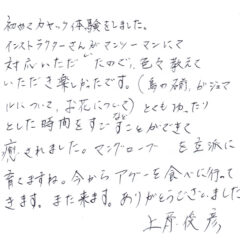 初めてカヤック体験をしました。
インストラクターさんがマンツーマンにて
対応いただいたので、色々教えて
いただき楽しかったです。(島の
について、お花について)とてもゆったり
とした時間をすごすことができて
など
癒されました。マングローブを立派に
育てますね。今からアグーを食べに行って
きます。また来ます。ありがとうございました
上原俊彦